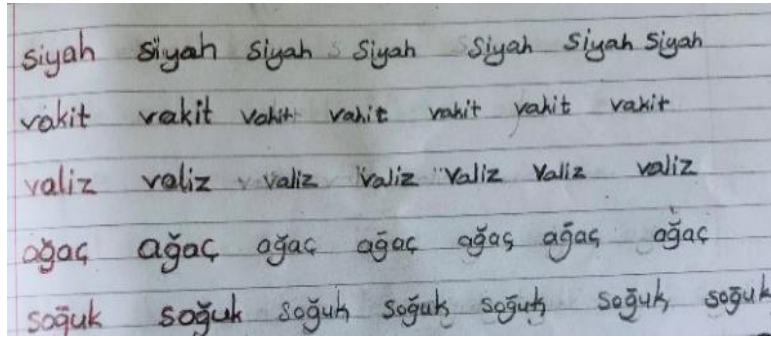 siyah siyah siyah siyah siyah siyah siyah
vakit vakit vakit vakit vakit vakit vakit
valiz valiz valiz valiz valiz valiz valiz
ağaç ağaç ağaç ağaç ağaç ağaç ağaç
soğuk soğuk soğuk soğuk soğuk soğuk soğuk